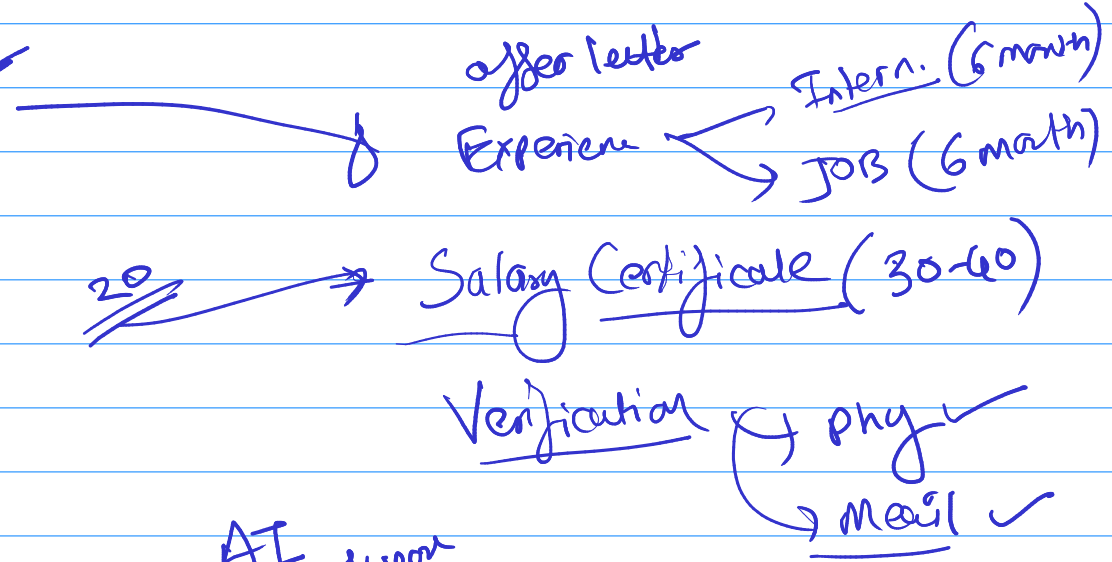 offer letter
Experienc
Intern. (6 month)
JOB (6 month)
20
Salary Certificate (30-40)
Verification
phy ✓
Mail ✓
AI